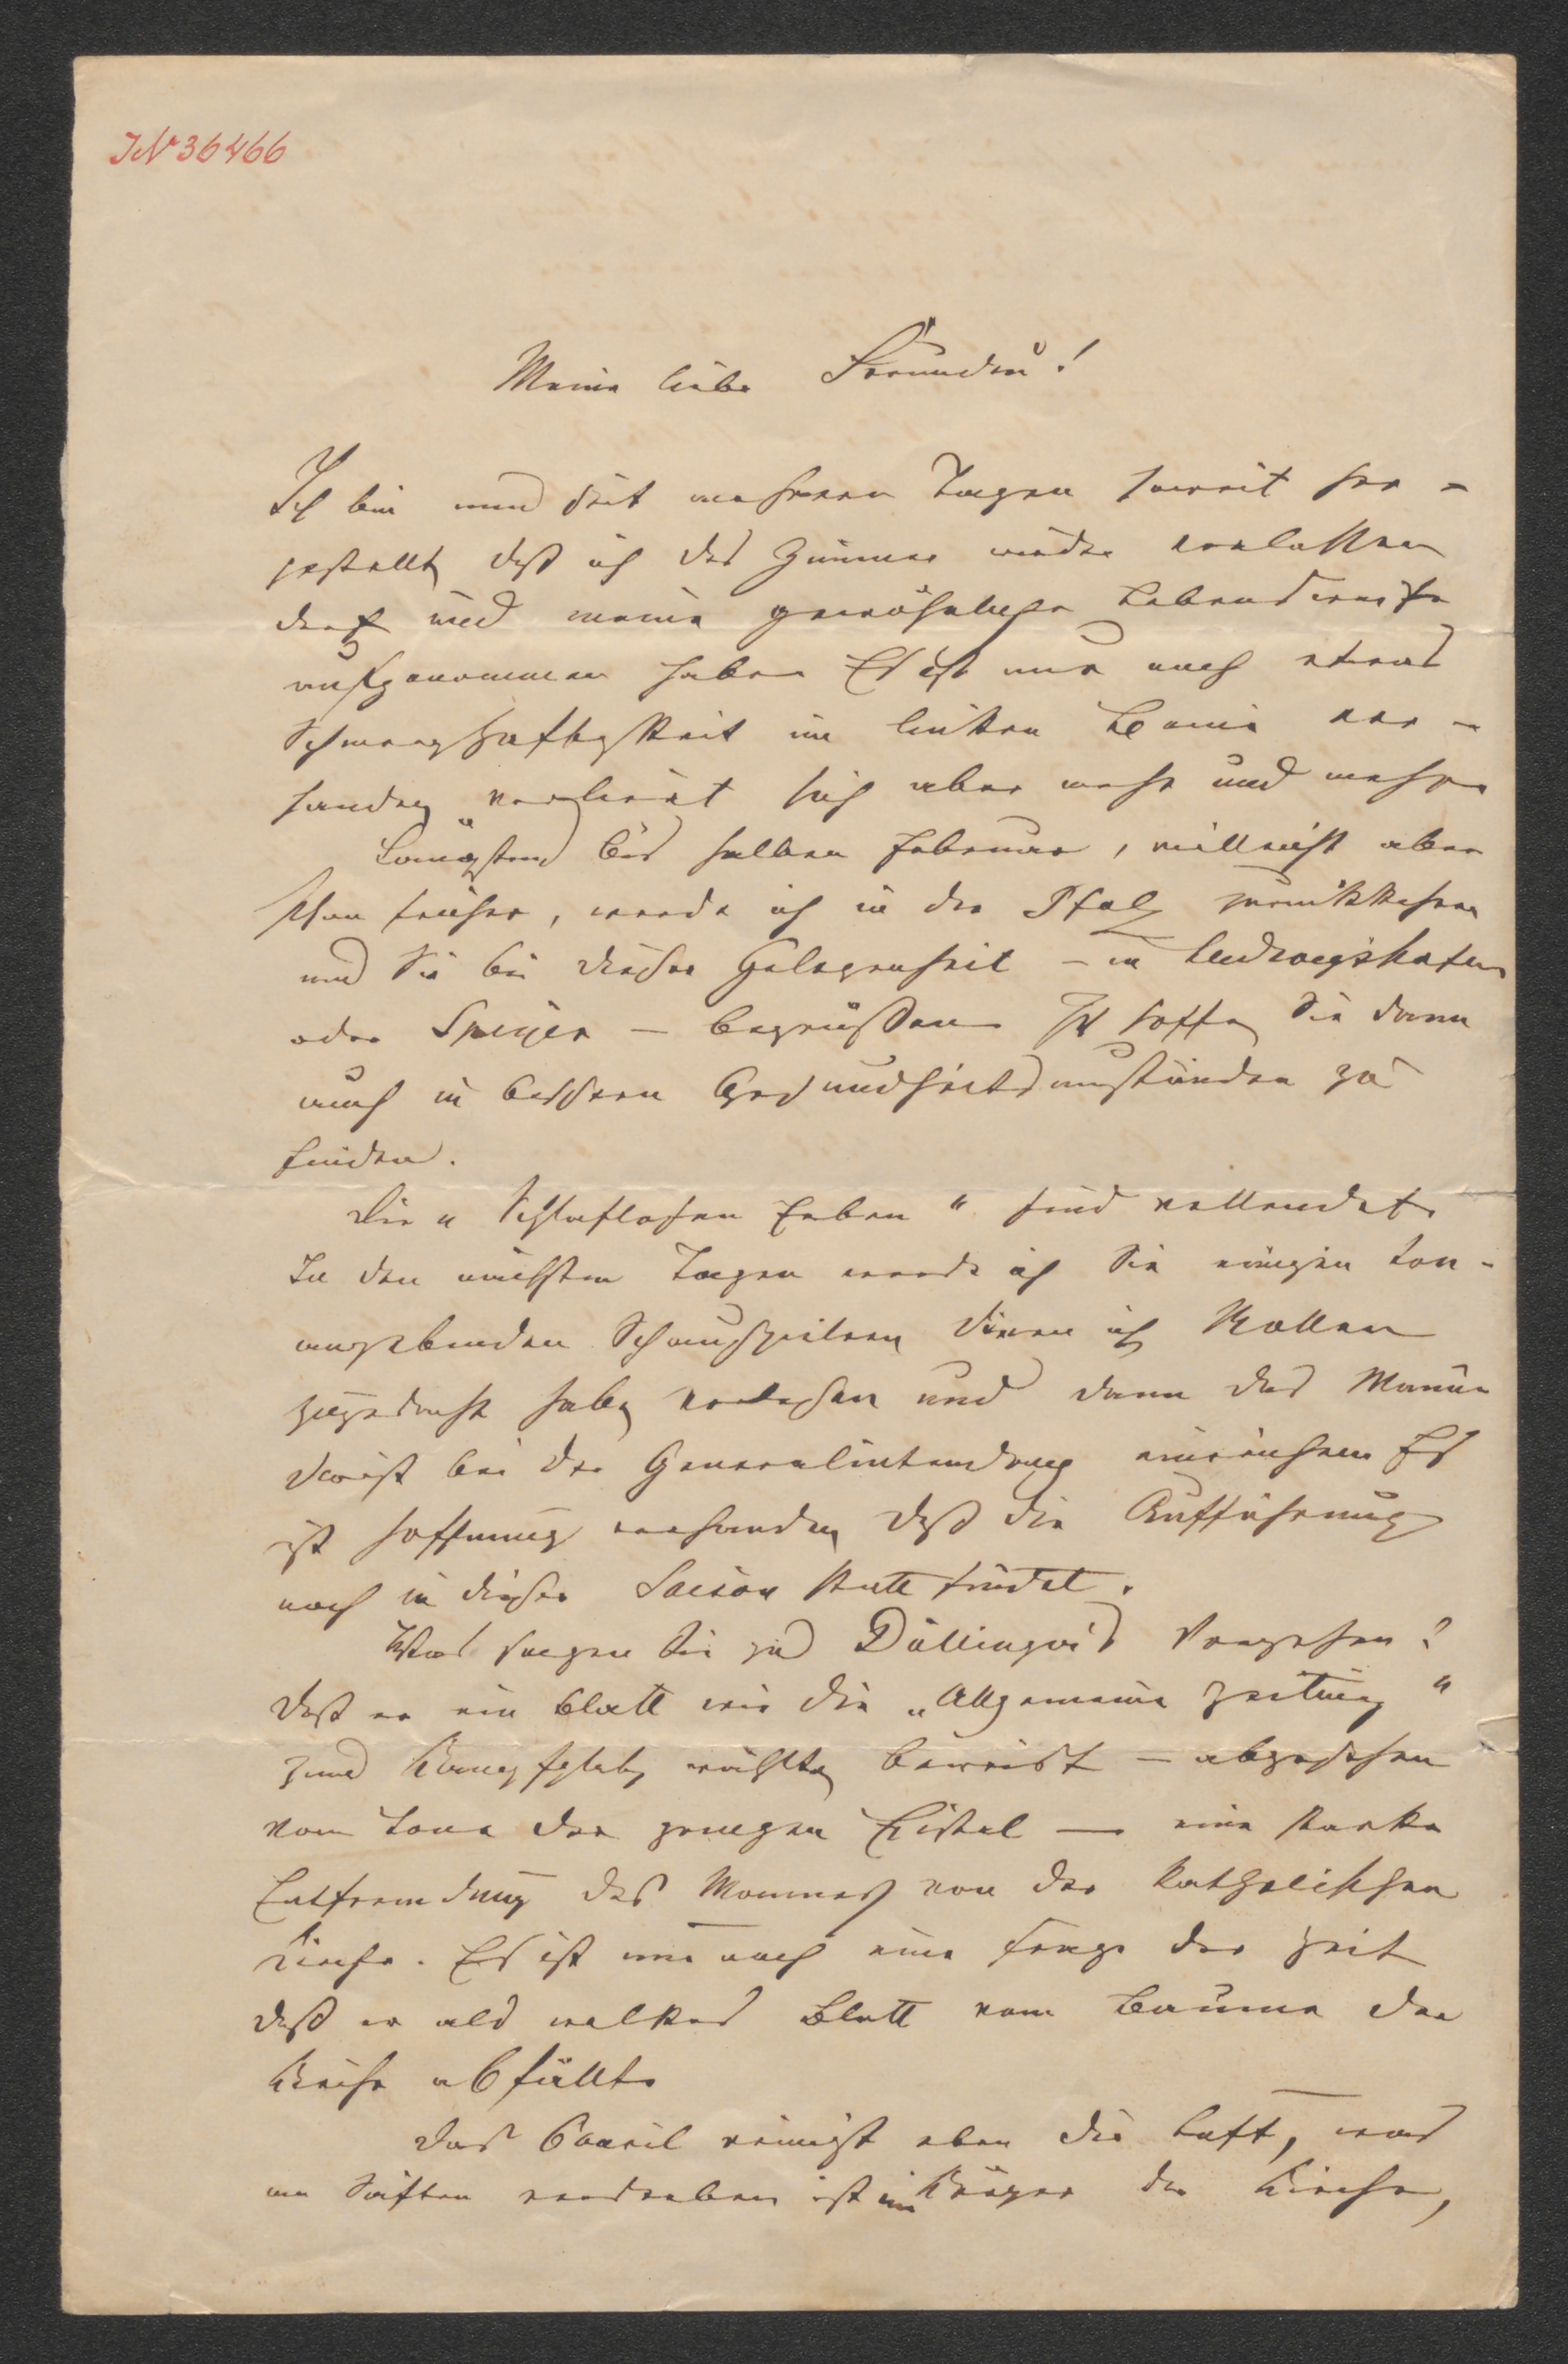 IN 36466
Meine liebe Freundin!
Ich bin nun seit mehreren Tagen soweit her-
gestellt, daß ich das Zimmer wieder verlassen
darf und meine gewöhnliche Lebensweise
aufgenommen habe. Es ist nur noch etwas
Schmerzhaftigkeit im linken Beine vor-
handen, verliert sich aber mehr und mehr.
Längstens bis halben Februar, vielleicht aber
schon früher, werde ich in die Pfalz zurükkehren
und Sie bei dieser Gelegenheit – in Ludwigshafen
oder Speyer – begrüßen. Ich hoffe, Sie dann
auch in bessern Gesundheitsumständen zu
finden.
Die „Schlaflosen Erben" sind vollendet.
In den nächsten Tagen werde ich Sie einigen ton-
angebenden Schauspielern, denen ich Rollen
zugedacht habe, vorlesen und dann das Manu-
skript bei der Generalintendanz einreichen. Es
ist Hoffnung vorhanden, daß die Aufführung
noch in dieser Saison stattfindet.
Was sagen Sie zu Döllinger's Vorgehen?
Daß er ein Blatt wie die „Allgemeine Zeitung"
zum Kampfplatz wählte, beweist – abgesehen
vom Tone der ganzen Epistel – eine starke
Entfremdung des Mannes von der katholischen
Kirche. Es ist nur noch eine Frage der Zeit
daß er als welkes Blatt vom Baume der
Kirche abfällt.
Das Concil reinigt eben die Luft, was
an Säften verdorben ist im Körper der Kirche,